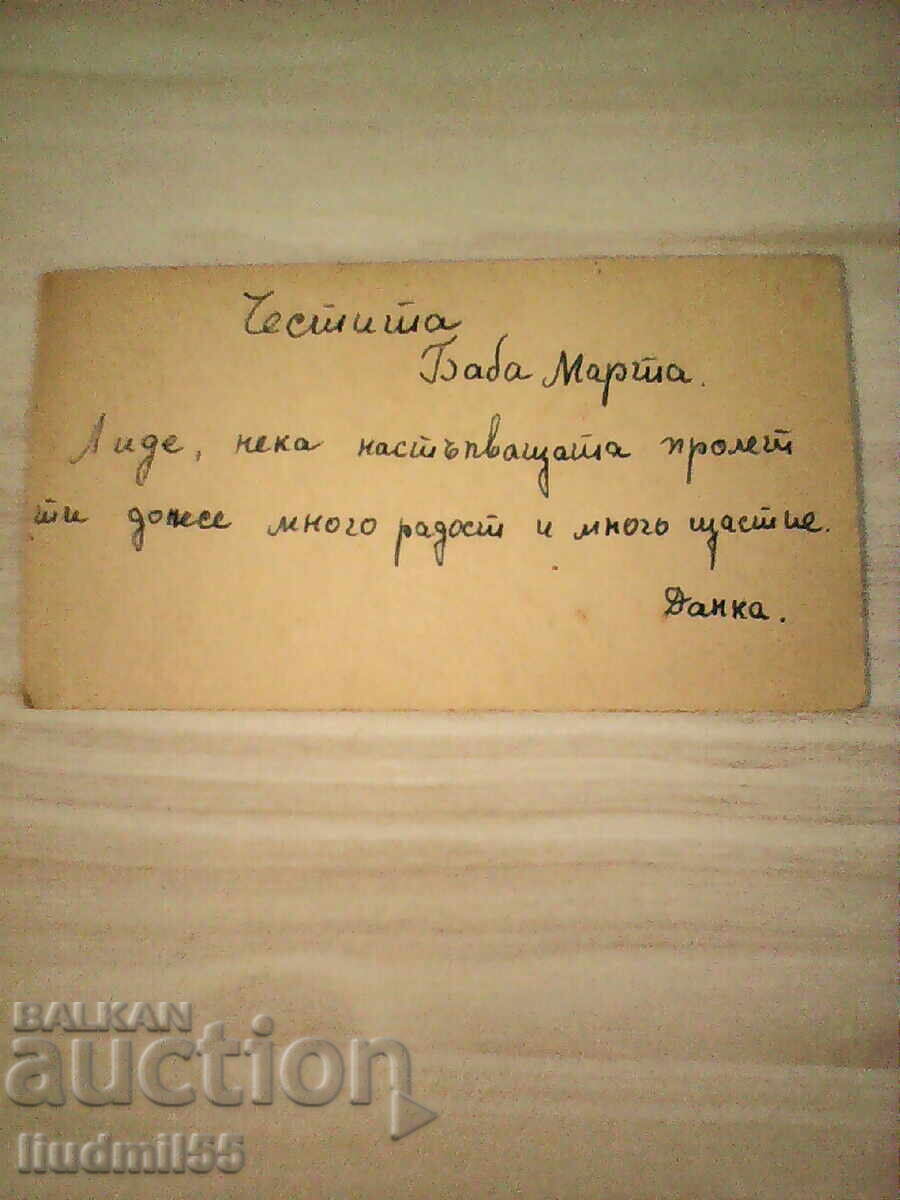 Честита
Баба Марта.
Лиде, нека настъпващата пролет
ти донесе много радост и много щастие.
Данка.
BALKAN
auction
liudmil55